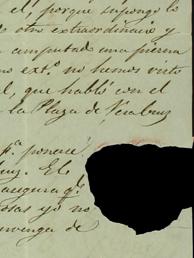 el, porque supongo lo
otro extraordinario y
amputado una pierna
no ext.º no hemos visto
el, que habló con el
la Plaza de Veracruz
p.ª ponace
El
asegura q.e
cosas yo no
nvenga de